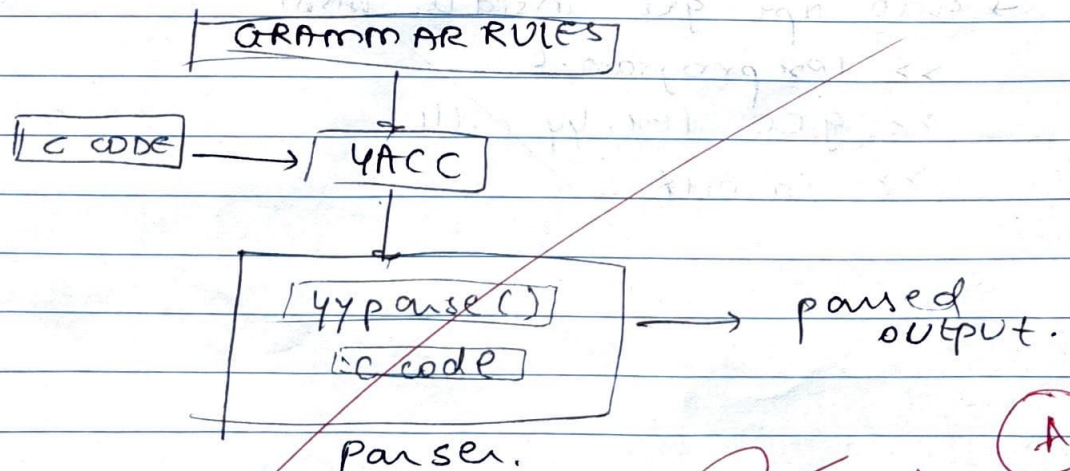 GRAMMAR RULES
C CODE
YACC
yyparse()
C code
parsed
output.
parser.
A